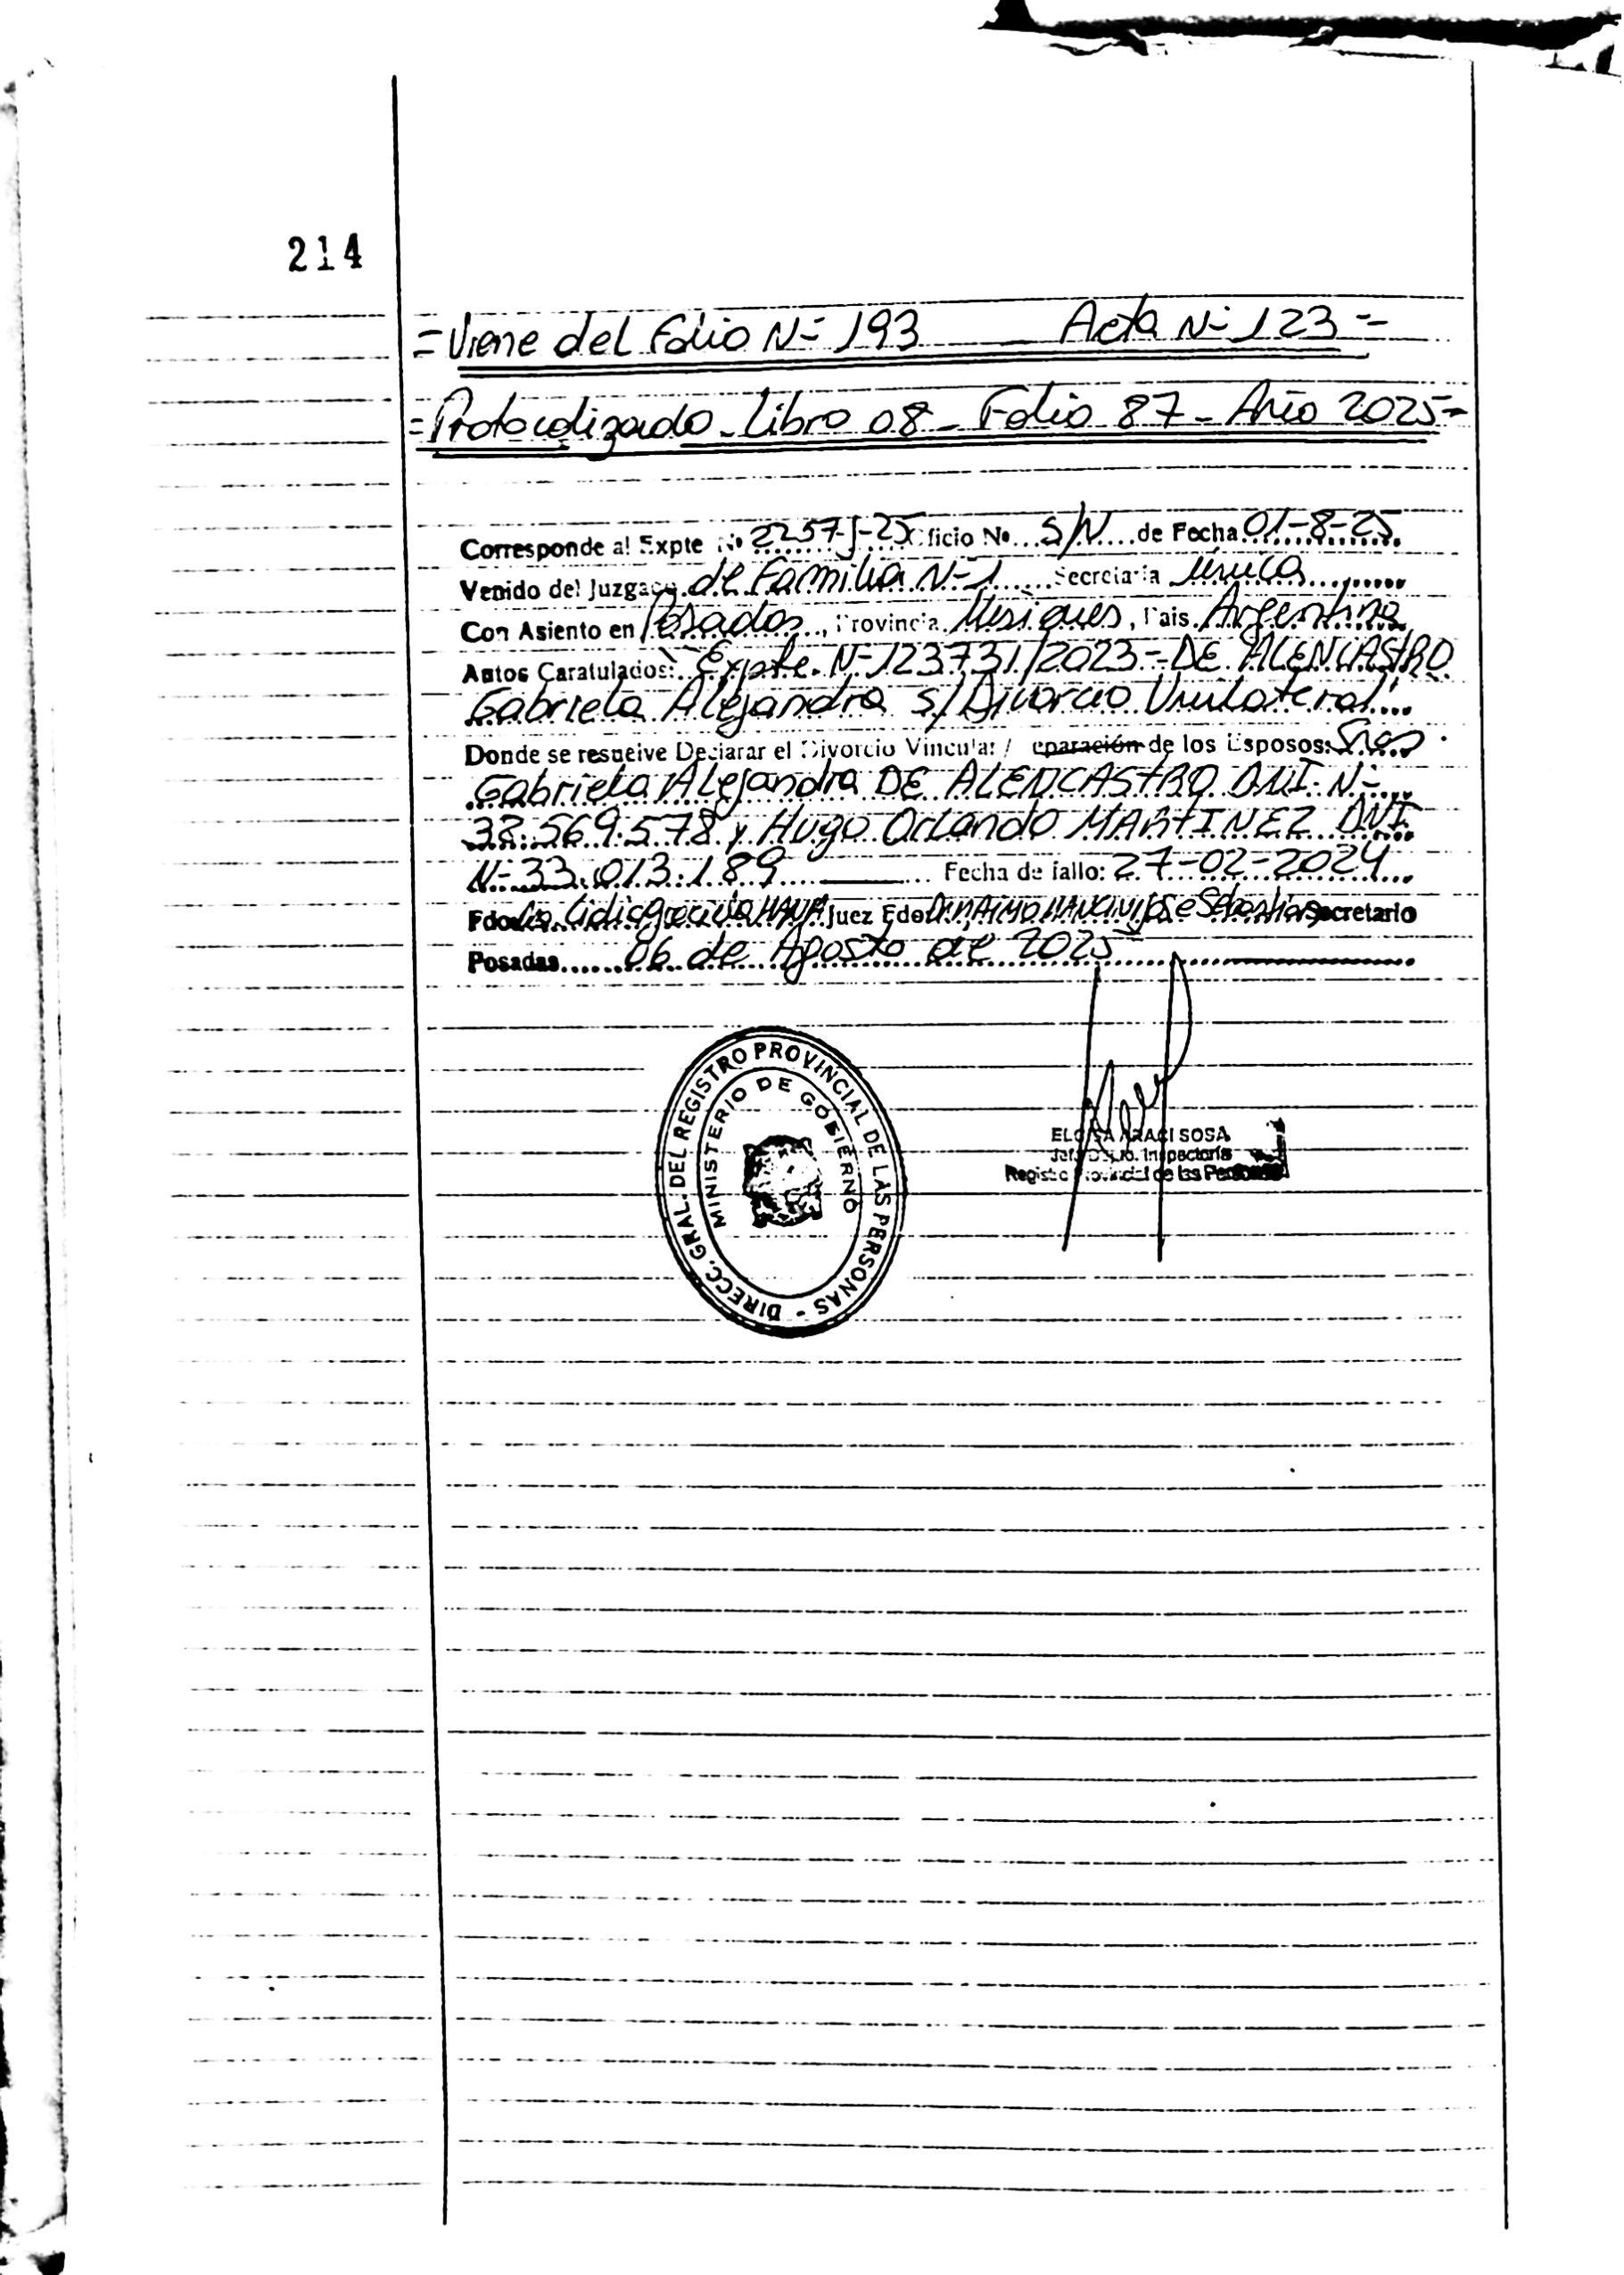 214
=Viene del Folio Nº 193 — Acta Nº 123=
=Protocolizado - Libro 08 - Folio 87 - Año 2025=
Corresponde al Expte Nº 2257-J-25 Oficio Nº S/N de Fecha 01-8-25
Venido del Juzgado de Familia Nº 1 Secretaría Única
Con Asiento en Posadas, Provincia Misiones, Pais Argentina
Autos Caratulados: "Expte. Nº 123731/2023 - DE ALENCASTRO
Gabriela Alejandra s/Divorcio Unilateral"
Donde se resuelve Declarar el Divorcio Vincular / eparación de los Esposos: Sres
Gabriela Alejandra DE ALENCASTRO DNI Nº
38.569.578 y Hugo Orlando MARTINEZ DNI
Nº 33.013.189 — Fecha de fallo: 27-02-2024
Fdo Juez Fdo José Sebastián Secretario
Posadas 06 de Agosto de 2025
DIRECC. GRAL. DEL REGISTRO PROVINCIAL DE LAS PERSONAS -
MINISTERIO DE GOBIERNO
ELOISA ARACI SOSA
Jefa Dpto. Inspectoría
Registro Provincial de las Personas